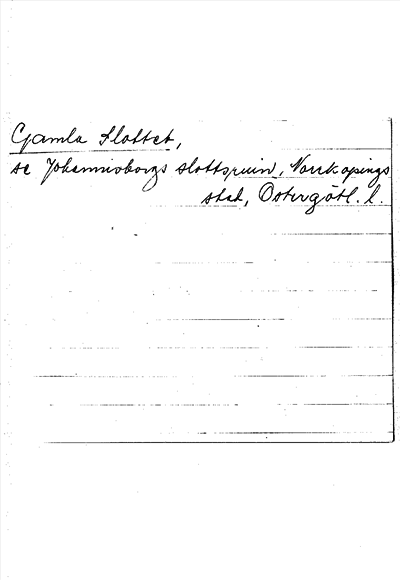 Gamla Slottet,
se Johannisborgs slottsruin, Norrköpings
stad, Östergötl. l.